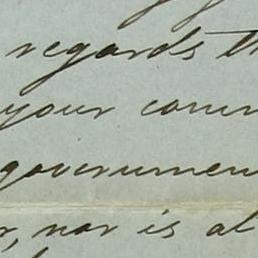 regards th
your comm
governmen
r, nor is al